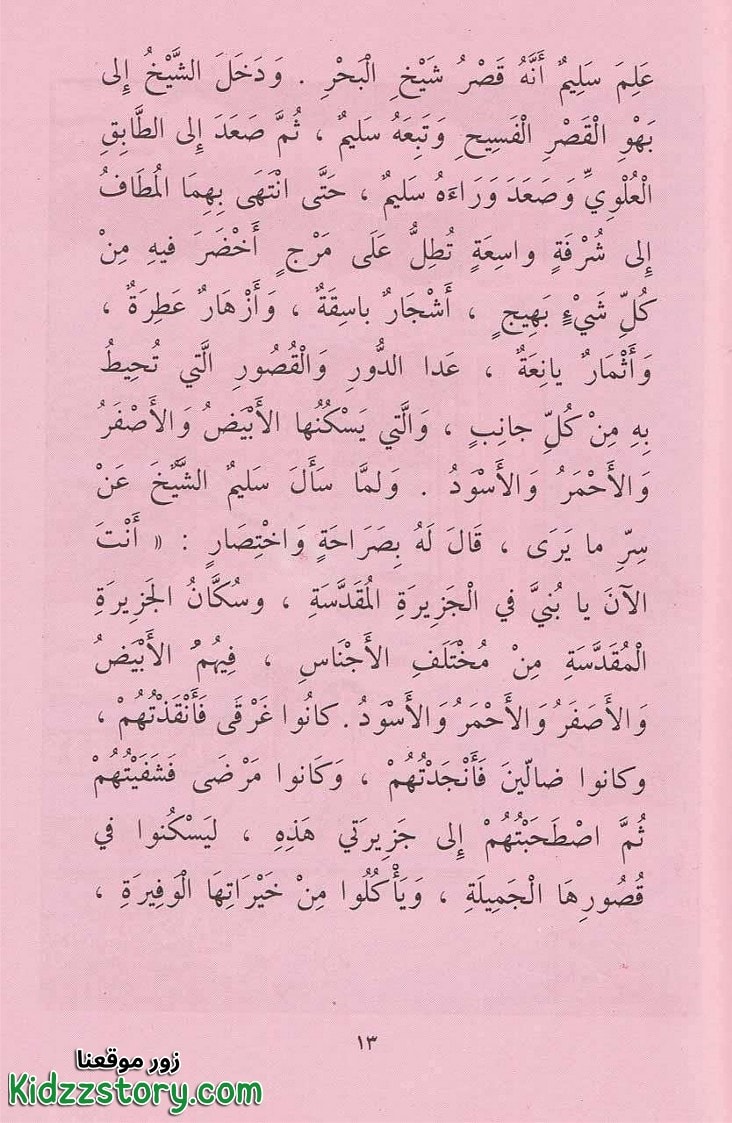 عَلِمَ سَلِيمٌ أَنَّهُ قَصْرُ شَيْخِ الْبَحْرِ . وَدَخَلَ الشَّيْخُ إِلى
بَهْوِ الْقَصْرِ الْفَسِيحِ وَتَبِعَهُ سَليمٌ ، ثُمَّ صَعَدَ إِلى الطَّابِقِ
الْعُلْوِيِّ وَصَعَدَ وَرَاءَهُ سَليمٌ ، حَتَّى انْتَهَى بِهِمَا الْمُطَافُ
إِلى شُرْفَةٍ واسِعَةٍ تُطِلُّ عَلَى مَرْجٍ أَخْضَرَ فيهِ مِنْ
كُلِّ شَيْءٍ بَهِيجٍ ، أَشْجَارٌ باسِقَةٌ ، وَأَزْهَارٌ عَطِرَةٌ ،
وَأَثْمَارٌ يانِعَةٌ ، عَدا الدُّورِ وَالْقُصُورِ الَّتي تُحِيطُ
بِهِ مِنْ كُلِّ جانِبٍ ، وَالَّتي يَسْكُنُها الأَبْيَضُ وَالأَصْفَرُ
وَالأَحْمَرُ وَالأَسْوَدُ . وَلمَّا سَأَلَ سَليمٌ الشَّيْخَ عَنْ
سِرِّ ما يَرَى ، قَالَ لَهُ بِصَرَاحَةٍ وَاخْتِصَارٍ : « أَنْتَ
الآنَ يا بُنيَّ في الْجَزِيرَةِ الْمُقَدَّسَةِ ، وسُكَّانُ الجَزِيرَةِ
الْمُقَدَّسَةِ مِنْ مُخْتَلَفِ الأَجْنَاسِ ، فِيهُمُ الأَبْيَضُ
وَالأَصَفَرُ وَالأَحْمَرُ وَالأَسْوَدُ . كانُوا غَرْقَى فَأَنْقَذْتُهُمْ ،
وكانوا ضالّينَ فَأَنْجَدْتُهُمْ ، وَكَانوا مَرْضَى فَشَفَيْتُهُمْ
ثُمَّ اصْطَحَبْتُهُمْ إِلى جَزِيرَتي هَذِهِ ، ليَسْكُنوا في
قُصُورِهَا الْجَمِيلَةِ ، وَيَأْكُلُوا مِنْ خَيْرَاتِهَا الْوَفِيرَةِ ،
١٣
زور موقعنا
Kidzzstory.com